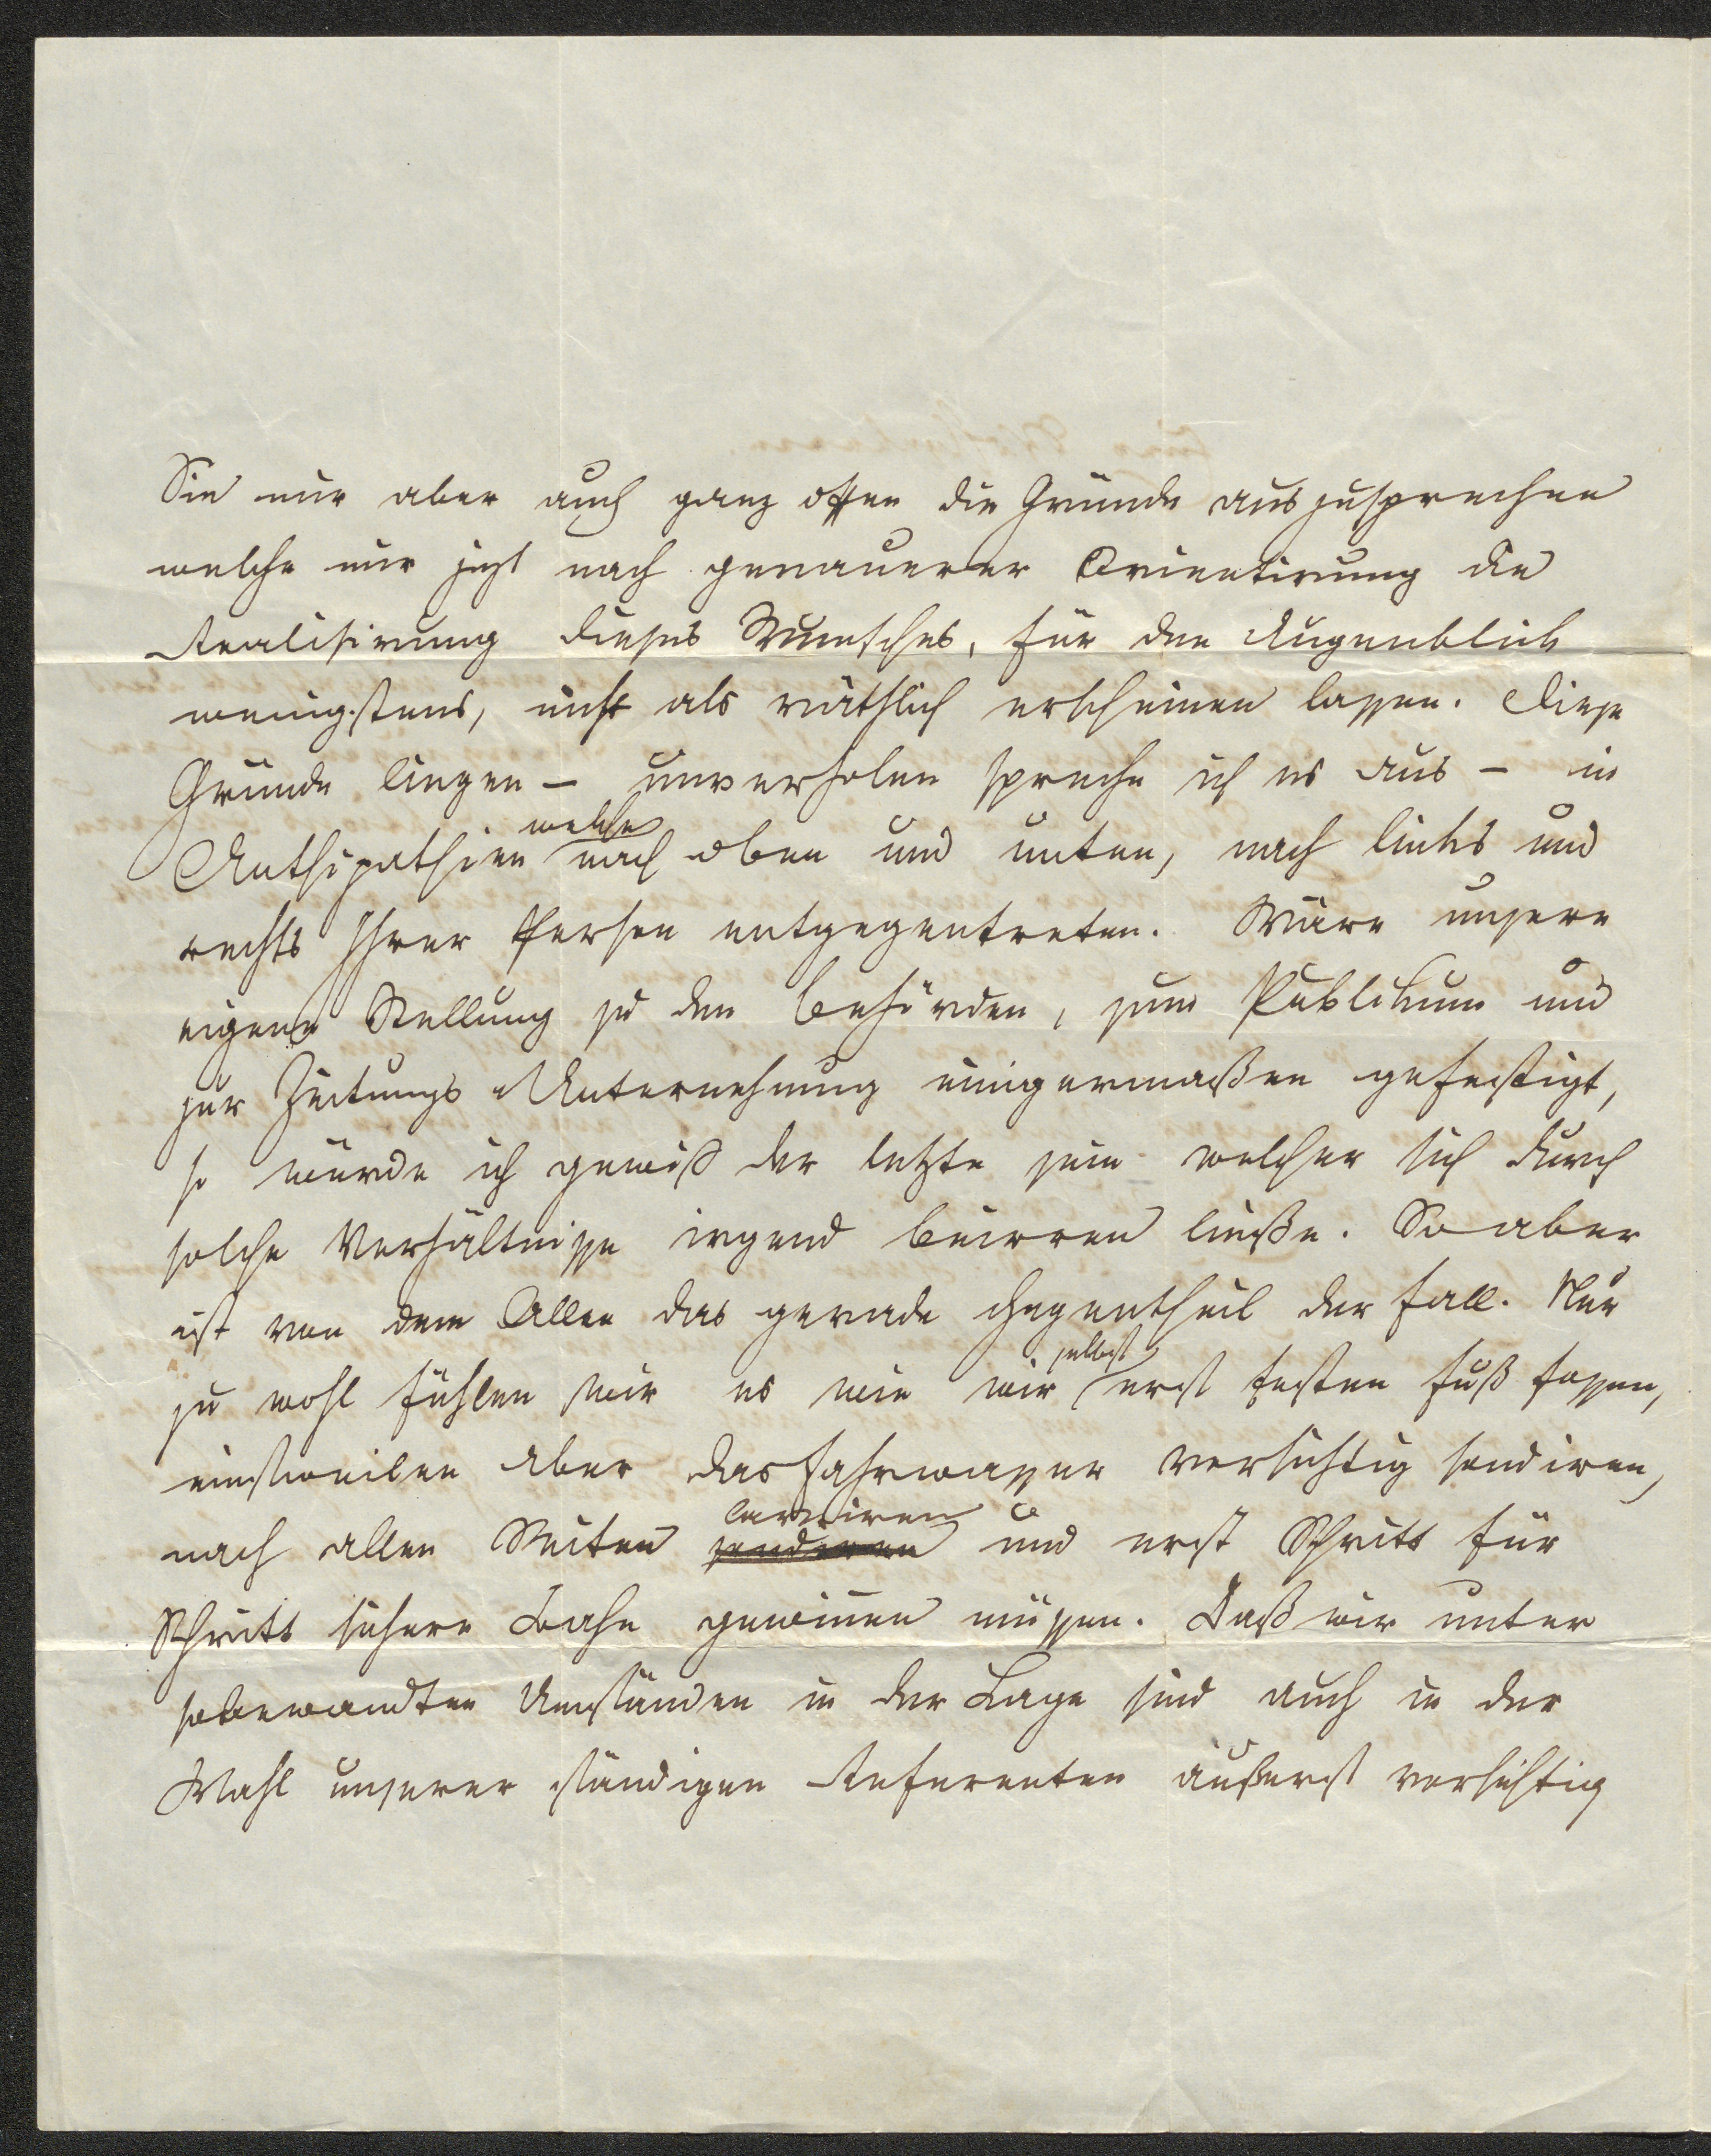 Sie nur aber auch ganz offen die Gründe auszusprechen
welche mir jezt nach genauerer Orientirung die
Realisirung dieses Wunsches, für den Augenblick
wenigstens, nicht als räthlich erscheinen lassen. Diese
Gründe liegen – unverholen spreche ich es aus – in
Anthipathien welche nach oben und unten, nach links und
rechts Ihrer Person entgegentreten. Wäre unsere
eigene Stellung zu den Behörden, zum Publikum und
zur Zeitungs Unternehmung einigermaßen gefestigt,
so würde ich gewiß der letzte sein welcher sich durch
solche Verhältnisse irgend beirren ließe. So aber
ist von dem Allen das gerade Gegentheil der Fall. Nur
zu wohl fühlen wir es wie wir selbst erst festen Fuß fassen,
einstweilen aber das Fahrwasser vorsichtig sondiren,
nach allen Seiten laviren und erst Schritt für
Schritt sichere Bahn gewinnen müssen. Daß wir unter
sobewandten Umständen in der Lage sind auch in der
Wahl unserer ständigen Referenten äußerst vorsichtig